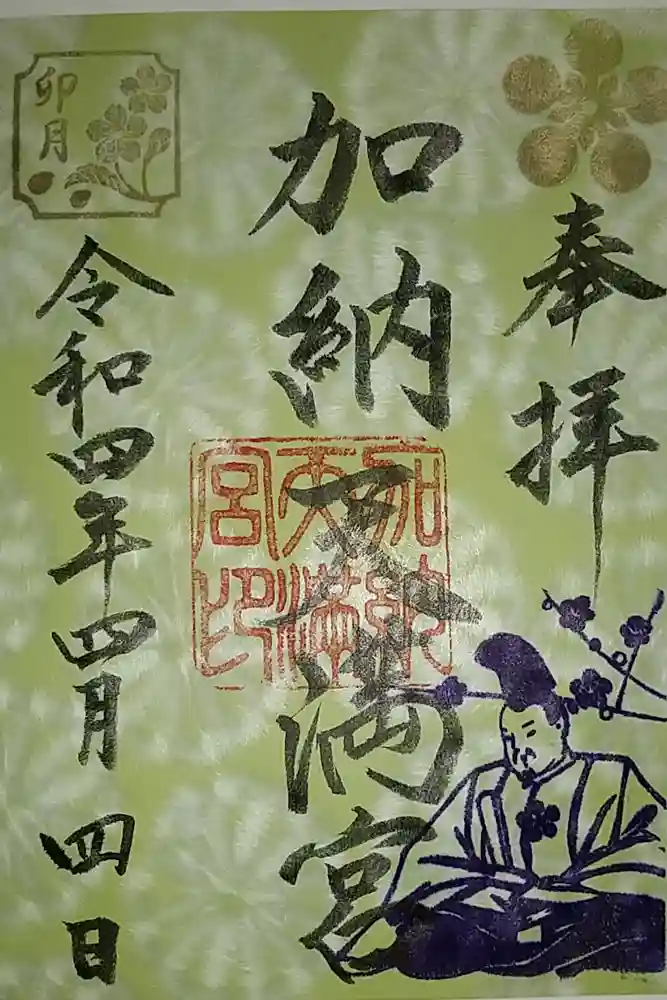 奉拝
加納天満宮
加納天満宮印
卯月
令和四年四月四日